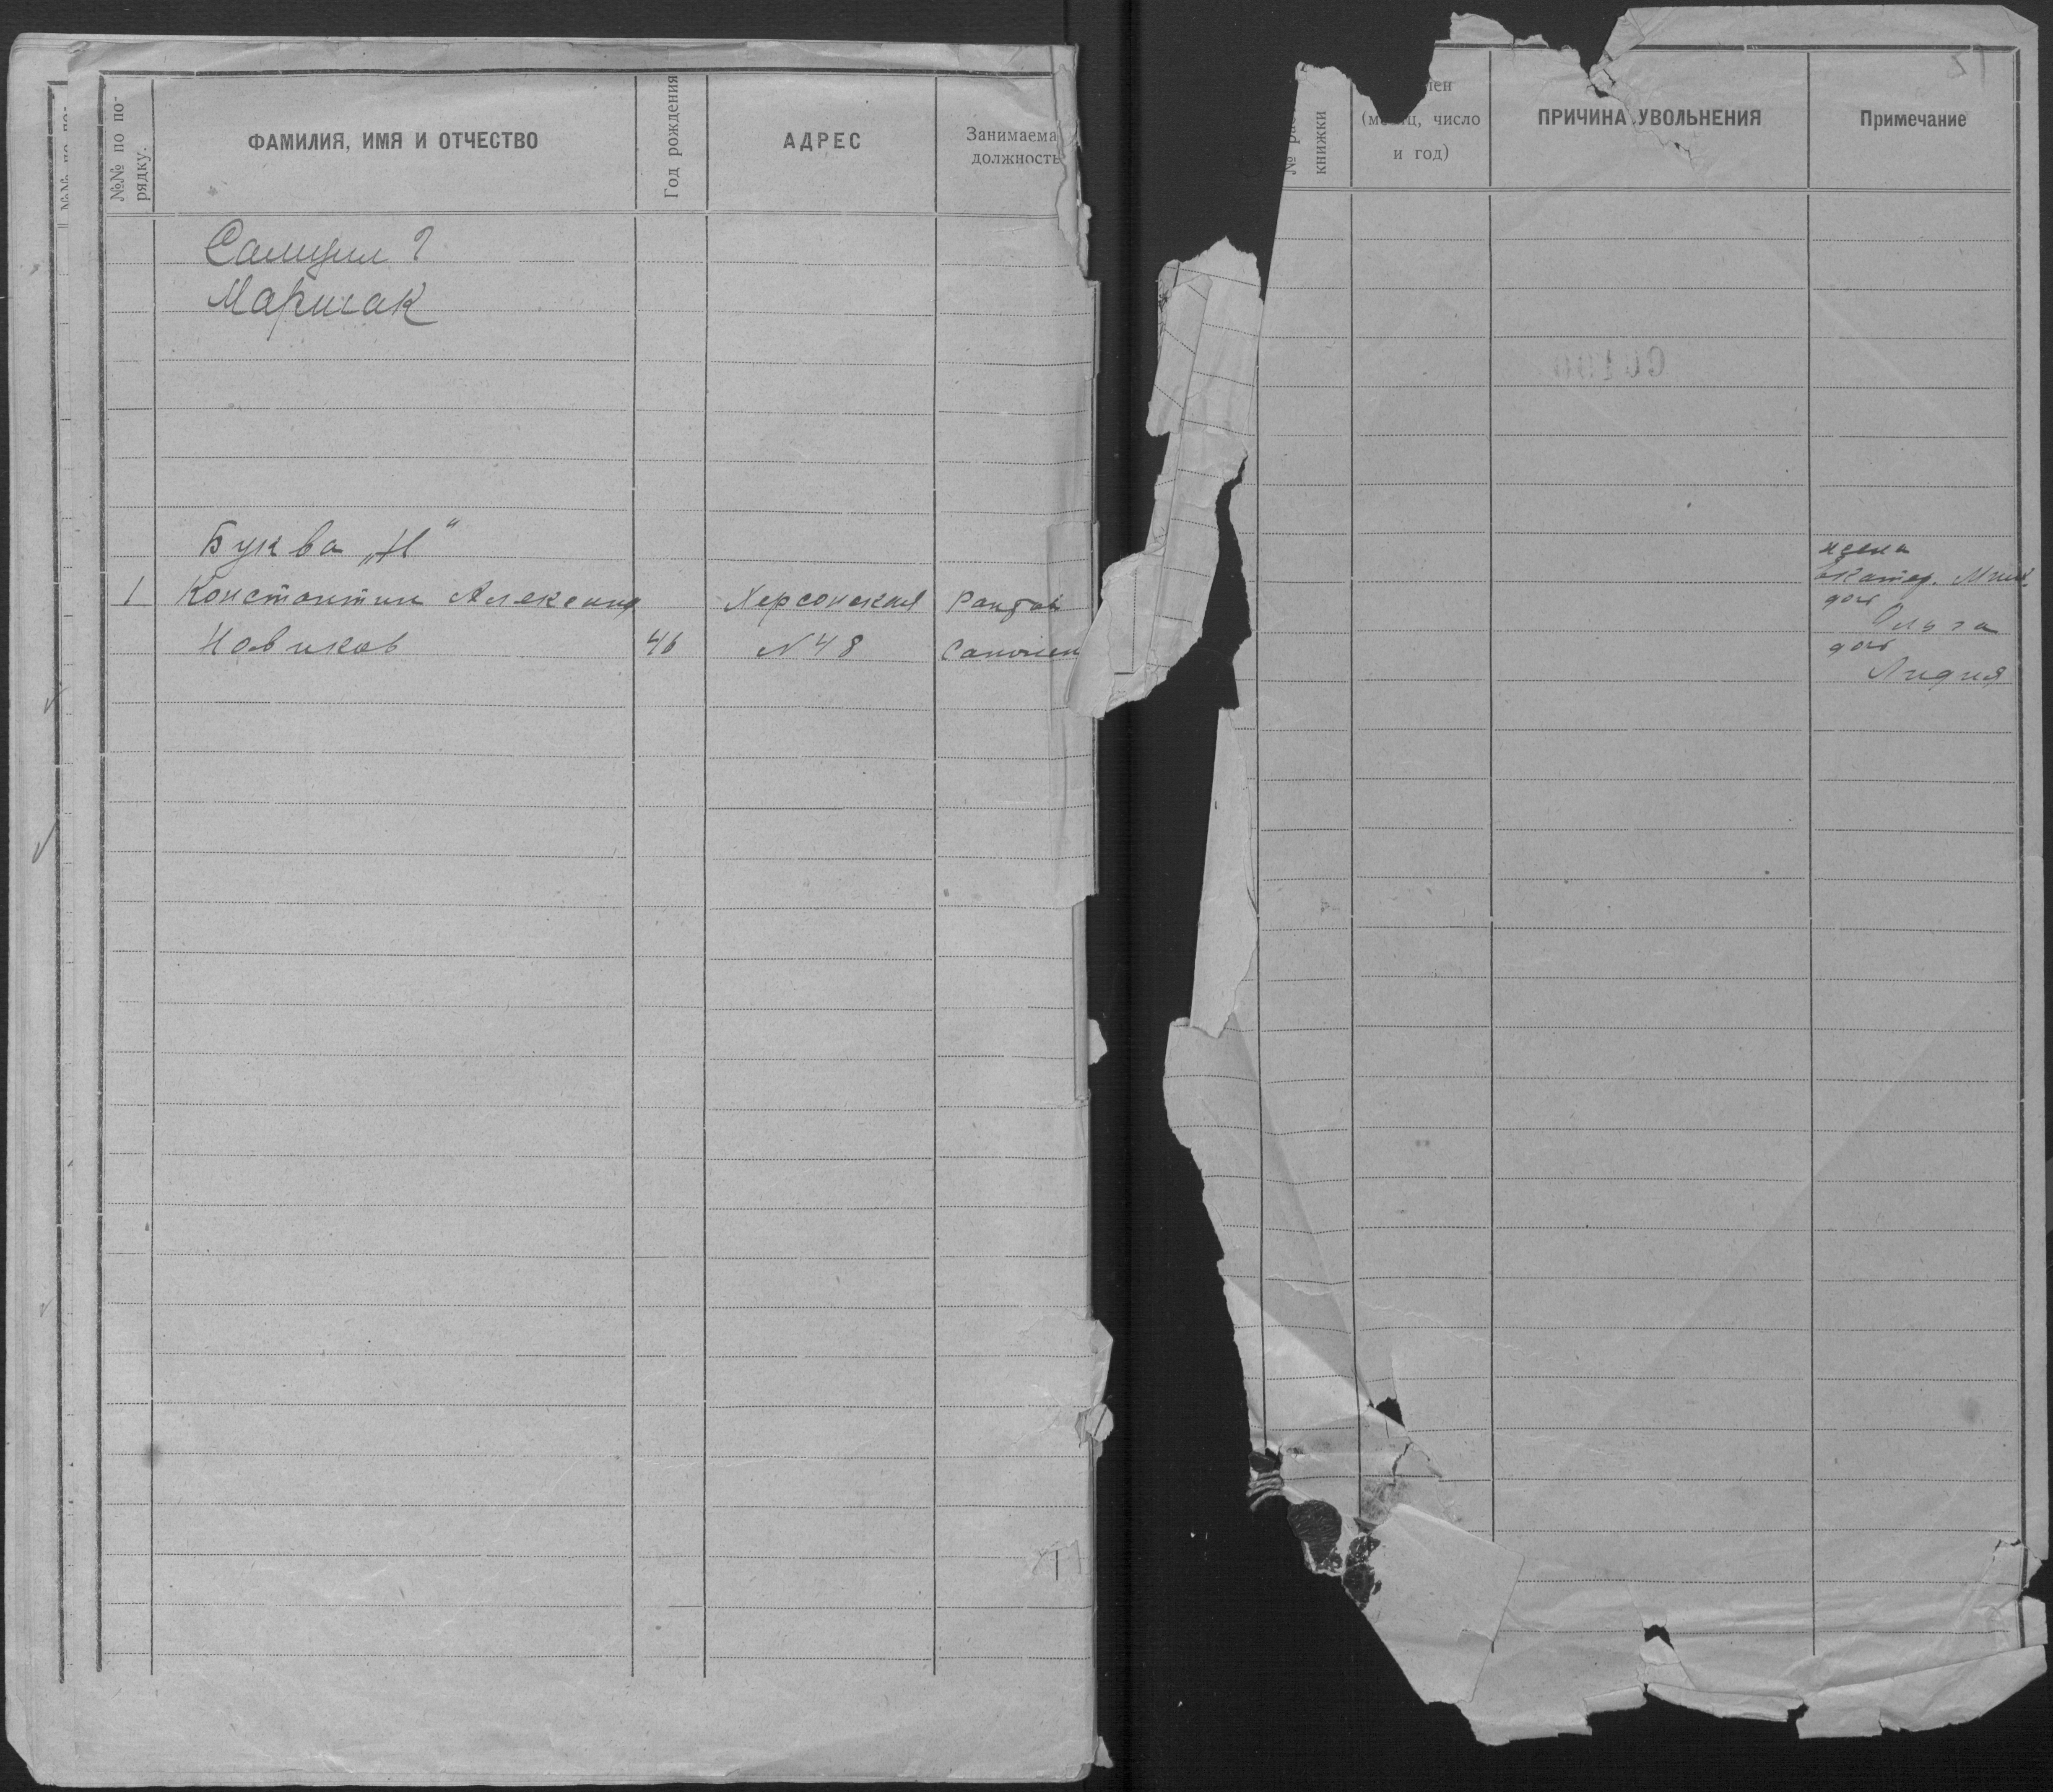 №№ по по-
рядку.
ФАМИЛИЯ, ИМЯ И ОТЧЕСТВО
Год рождения
АДРЕС
Занимаема
должность
Самуил ?
Маршак
Буква „Н“
1 Константин Александ Херсонская
Новиков 46 №48 Сапожн
книжки
(месяц, число
и год)
ПРИЧИНА УВОЛЬНЕНИЯ
Примечание
жена
Екатер. Мих.
доч
Ольга
доч
Лидия